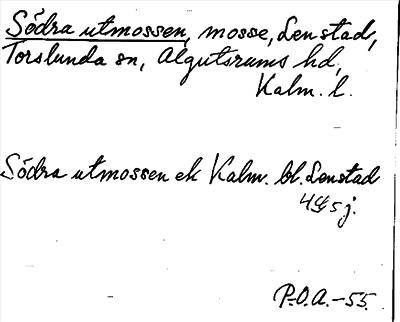 Södra utmossen, mosse, Lenstad,
Torslunda sn, Algutsrums hd,
Kalm. l.
Södra utmossen ek Kalm. bl. Lenstad
4G5j.
P.O.A.-55.